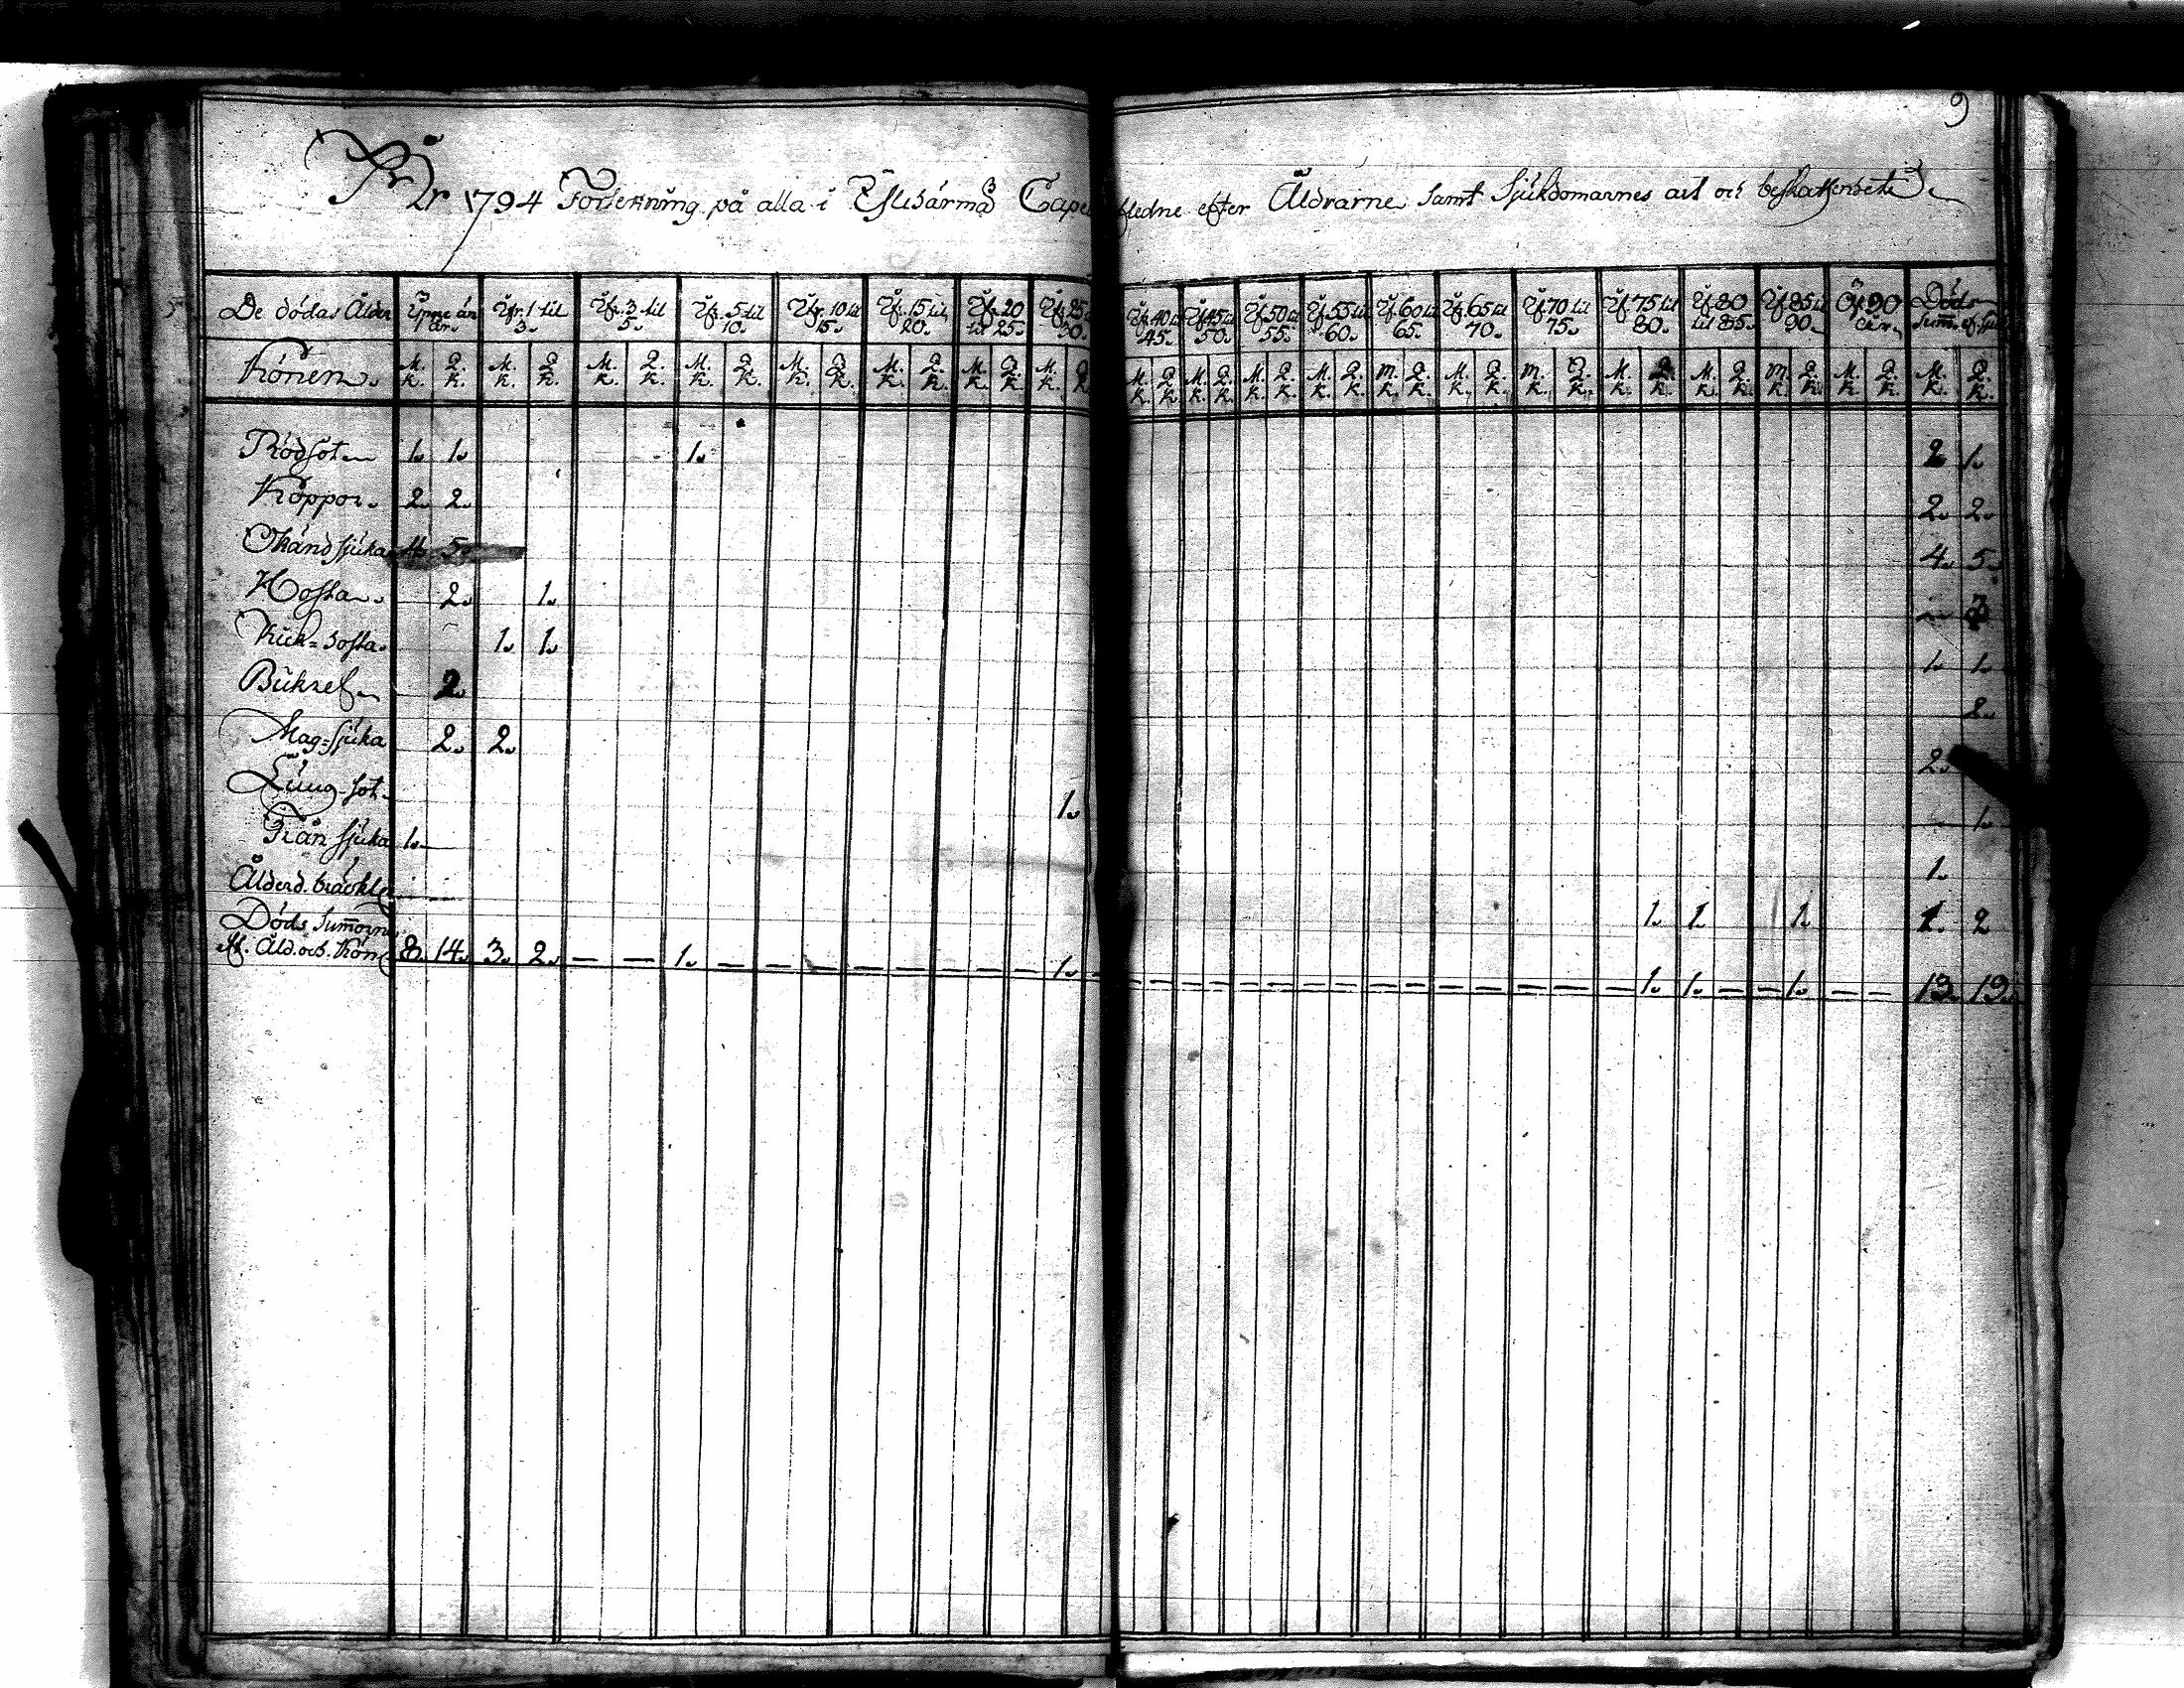 9
År 1794 Förtekning på alla i Esse härma Capel fledne efter Åldrarne samt Sjukdomarnes art och beskaffenhet
De dödas Ålder Inne än 1 år. Ifr. 1 til 3. Ifr. 3 til 5. Ifr. 5 til 10. Ifr. 10 til 15. Ifr. 15 til 20. Ifr. 20 til 25. Ifr. 25 30. Ifr. 40 til 45. Ifr. 45 til 50. Ifr. 50 til 55. Ifr. 55 til 60. Ifr. 60 til 65. Ifr. 65 til 70. Ifr. 70 til 75. Ifr. 75 til 80. Ifr. 80 til 85. Ifr. 85 til 90. Öf. 90 år Döds sum. ef. Sju
Könen. M.k. Q.k. M.k. Q.k. M.k. Q.k. M.k. Q.k. M.k. Q.k. M.k. Q.k. M.k. Q.k. M.k. Q.k. M.k. Q.k. M.k. Q.k. M.k. Q.k. M.k. Q.k. M.k. Q.k. M.k. Q.k. M.k. Q.k. M.k. Q.k. M.k. Q.k. M.k. Q.k. M.k. Q.k. M.k. Q.k.
Rödsot 1. 1. 1. 2 1.
Koppor. 2. 2. 2. 2.
Okänd sjuka 4. 5. 4. 5.
Hosta. 2. 1. — 3
Kik=hosta. 1. 1. 1. 1.
Bukref 2. 2.
Mag=sjuka 2. 2. 2.
Lung-sot. 1. 1.
Trån sjuka 1. 1.
Ålderd. bräckl. 1. 1. 1. 1. 2
Döds Summorne
eft. Åld. och Kön 8. 14. 3. 2. — — 1. — — — — — — — — 1. — — — — — — — — — — — — — — — 1. 1. — — 1. — — 13. 19.